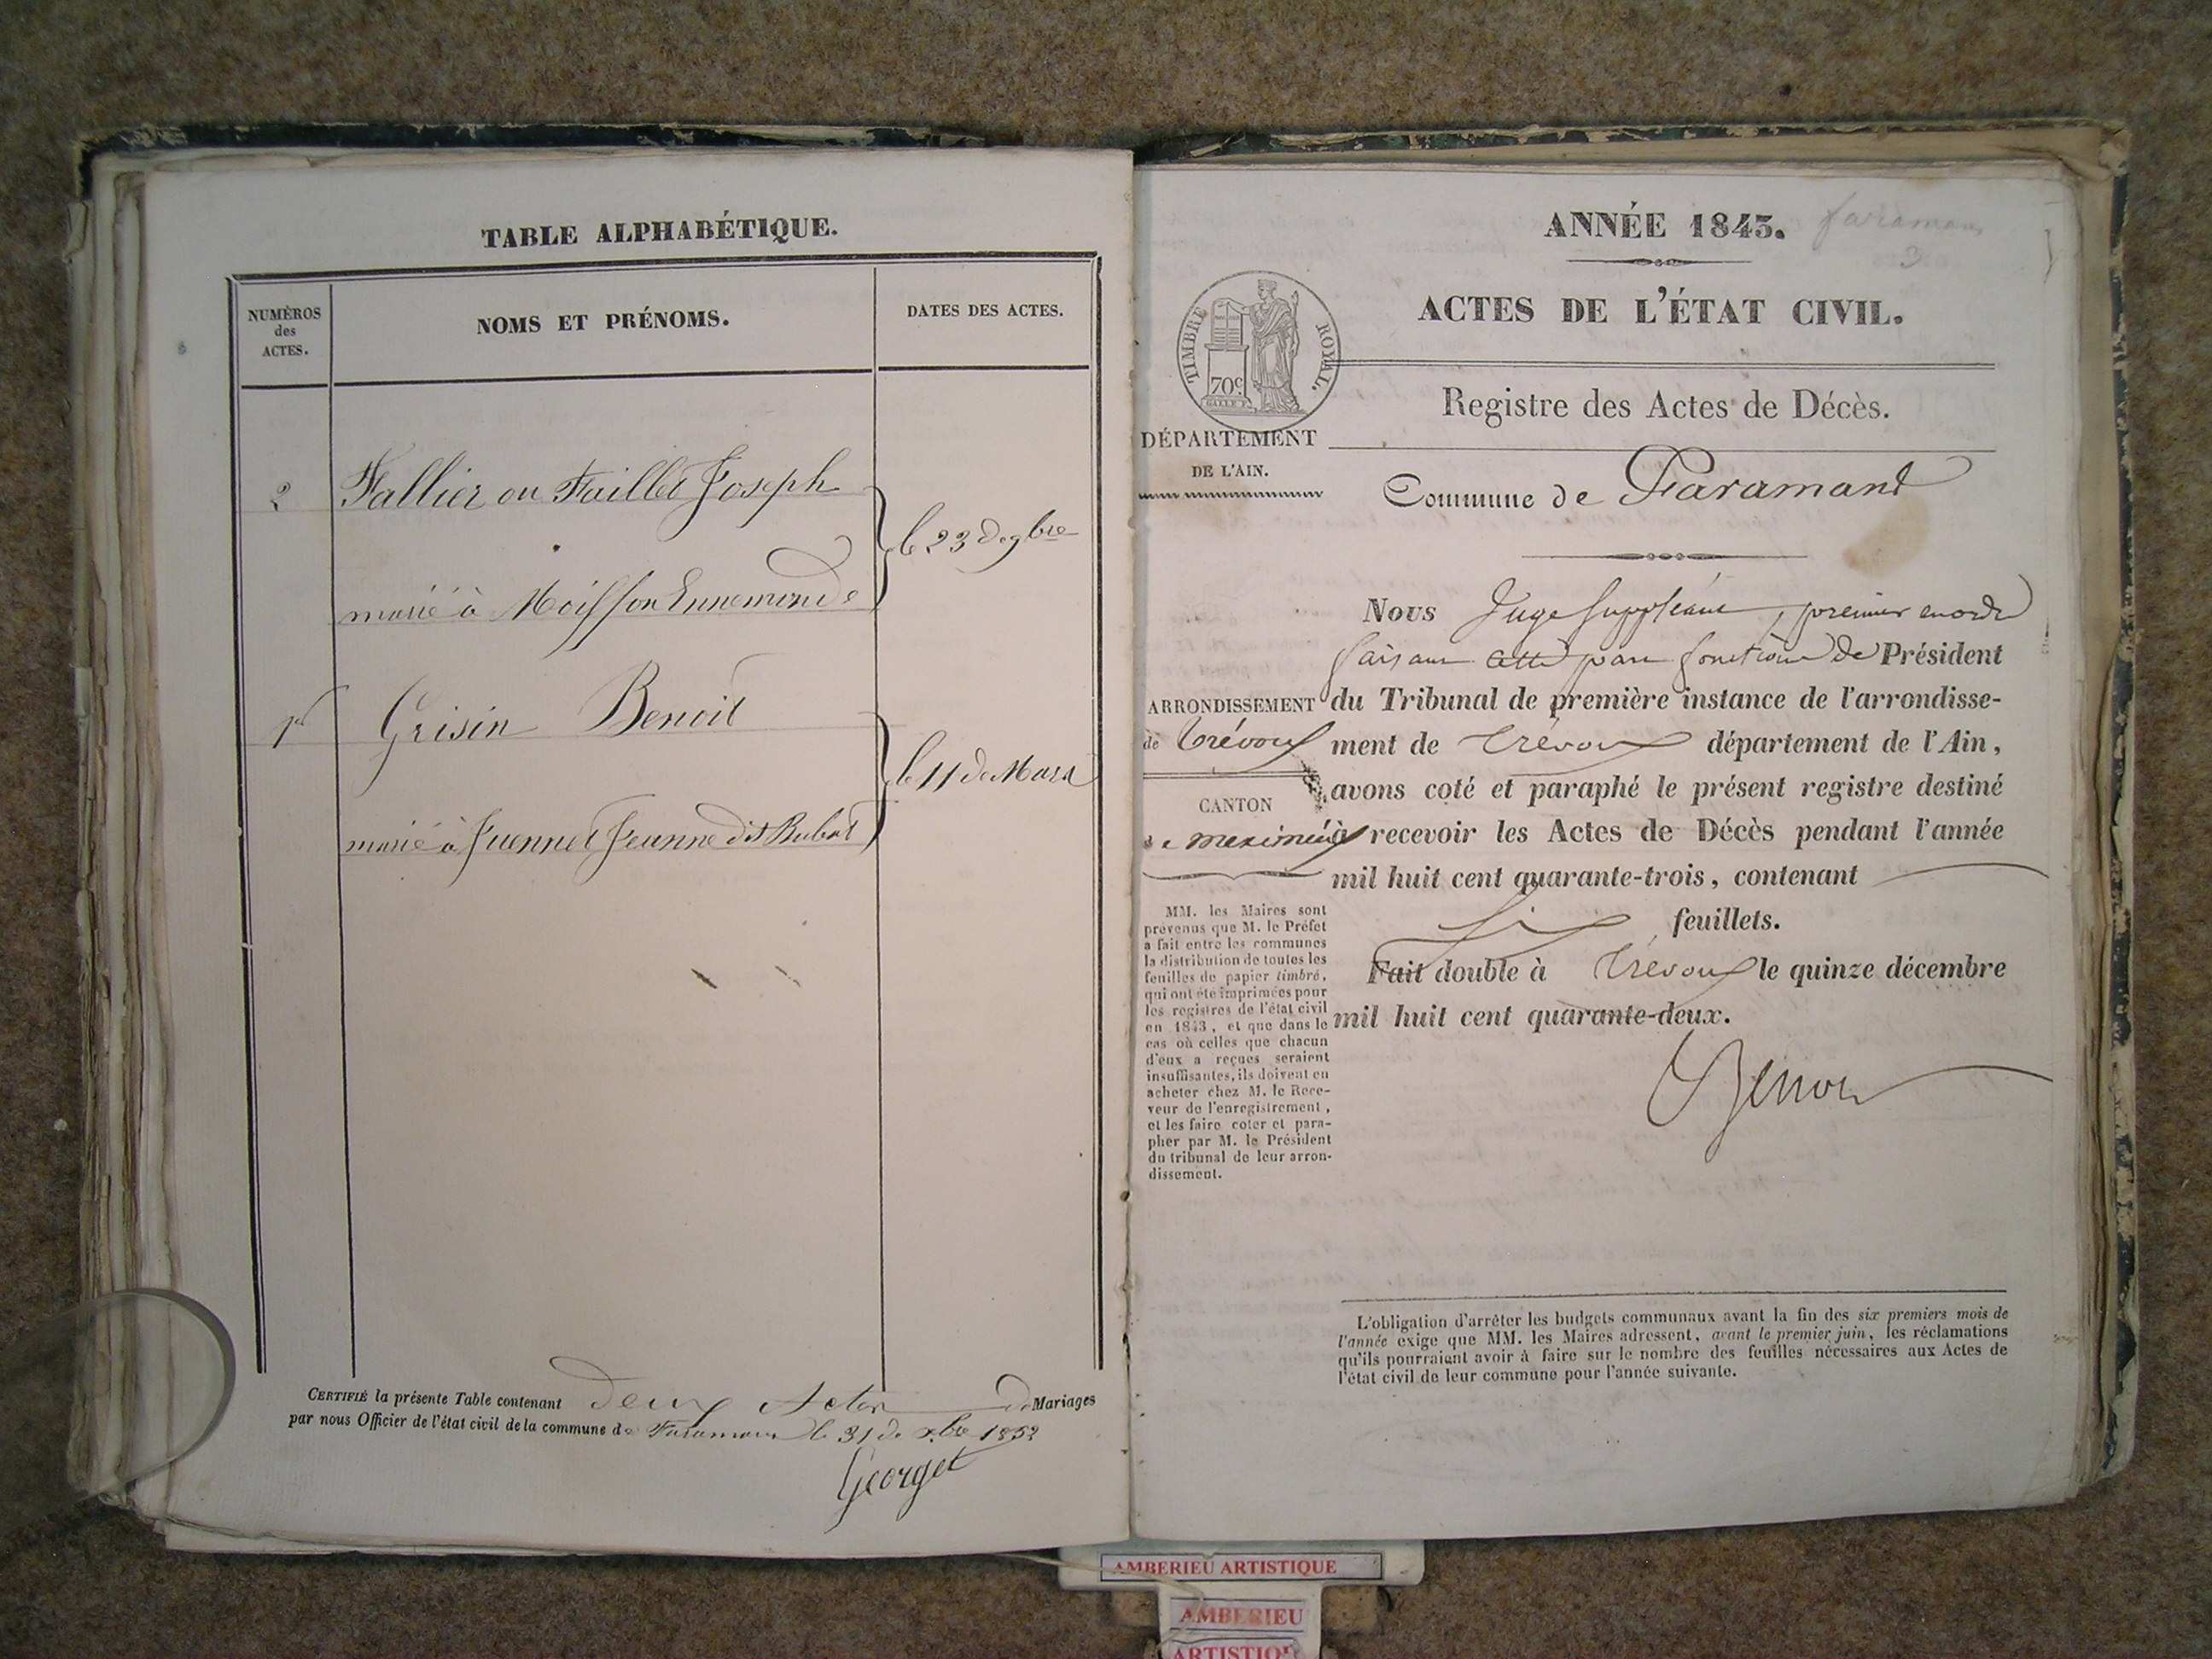 TABLE ALPHABÉTIQUE.
NUMÈROS
des
ACTES.
NOMS ET PRÉNOMS.
DATES DES ACTES.
2 Fallier ou Faillet Joseph
le 23 de 9bre
marié à Moisson Ennemonde
1er Grisin Benoit
le 11 de Mars
marié à Juennet Jeanne dit Rubat
CERTIFIÉ la présente Table contenant deux Actes de Mariages
par nous Officier de l'état civil de la commune de Faramans le 31 de xbre
Georget
ANNÉE 1843.
faramans
3
ACTES DE L'ÉTAT CIVIL.
TIMBRE ROYAL.
70c
Registre des Actes de Décès.
DÉPARTEMENT
DE L'AIN.
Commune de Faramant
Nous Juge Suppléant, premier en ordre
faisant pour fonctions de Président
ARRONDISSEMENT
de Trévoux
CANTON
de meximieux
du Tribunal de première instance de l'arrondisse-
ment de Trévoux département de l'Ain,
avons coté et paraphé le présent registre destiné
à recevoir les Actes de Décès pendant l'année
mil huit cent quarante-trois, contenant
Six feuillets.
Fait double à Trévoux le quinze décembre
mil huit cent quarante-deux.
MM. les Maires sont
prévenus que M. le Préfet
a fait entre les communes
la distribution de toutes les
feuilles de papier timbré,
qui ont été imprimées pour
les registres de l'état civil
en 1843, et que dans le
cas où celles que chacun
d'eux a reçues seraient
insuffisantes, ils doivent en
acheter chez M. le Rece-
veur de l'enregistrement,
et les faire coter et para-
pher par M. le Président
du tribunal de leur arron-
dissement.
L'obligation d'arrêter les budgets communaux avant la fin des six premiers mois de
l'année exige que MM. les Maires adressent, avant le premier juin, les réclamations
qu'ils pourraient avoir à faire sur le nombre des feuilles nécessaires aux Actes de
l'état civil de leur commune pour l'année suivante.
AMBERIEU ARTISTIQUE
AMBERIEU
ARTISTIQUE